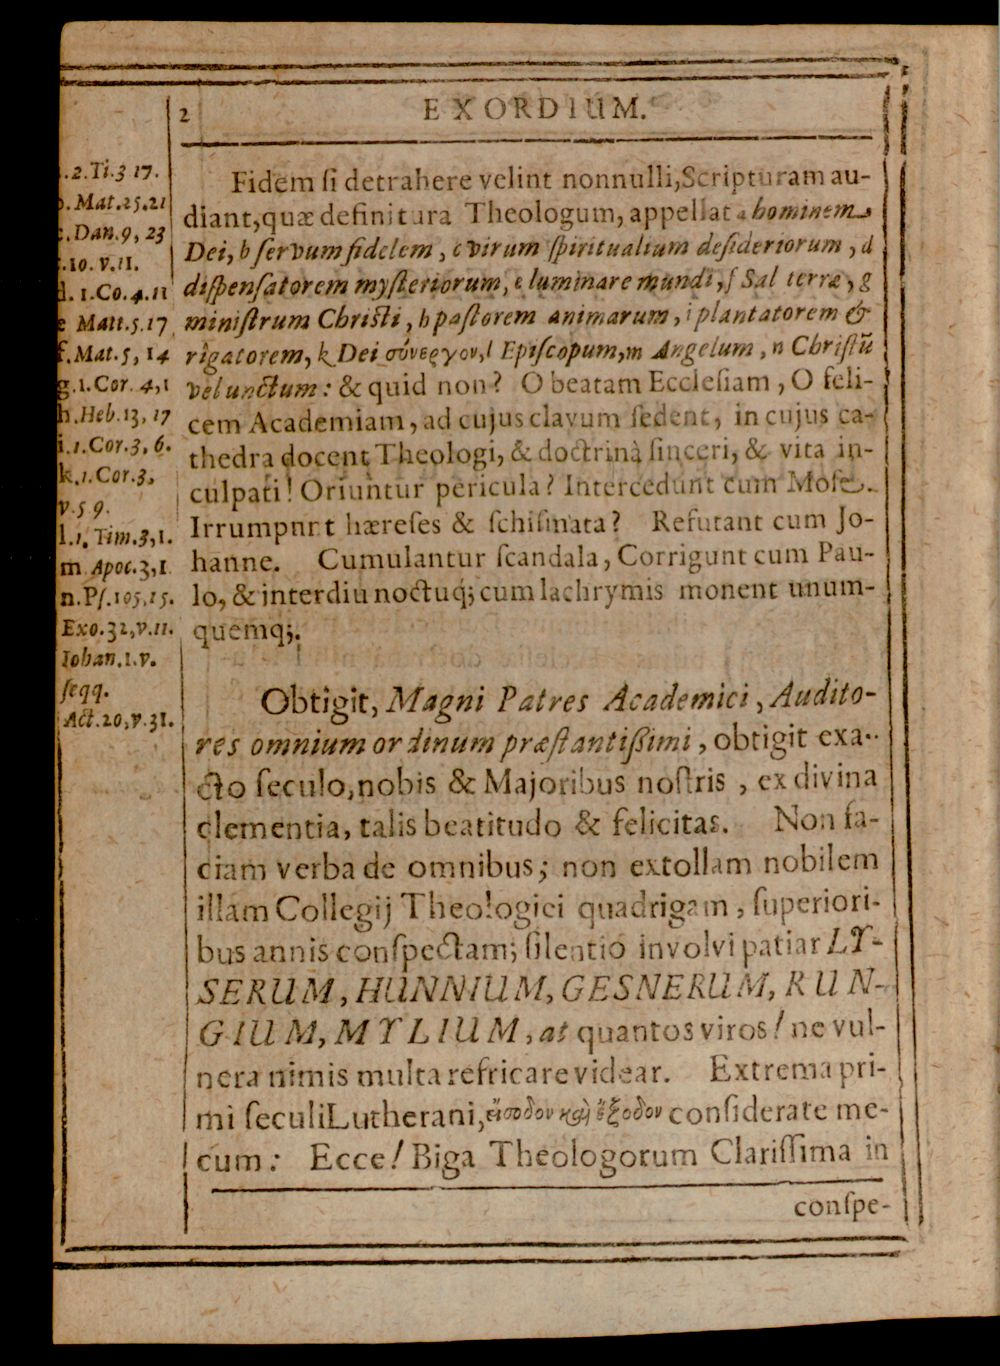 2 EXORDIUM.
Fidem ſi detrahere velint nonnulli, Scripturam au-
diant, quæ definitura Theologum, appellat a hominem
Dei, b ſervum fidelem, c virum ſpiritualium deſideriorum, d
diſpenſatorem myſteriorum, e luminare mundi, f Sal terræ, g
miniſtrum Chriſti, h paſtorem animarum, i plantatorem &
rigatorem, k Dei σύνεργον, l Epiſcopum, m Angelum, n Chriſtū
vel unctum: & quid non? O beatam Eccleſiam, O feli-
cem Academiam, ad cujus clavum ſedent, in cujus ca-
thedra docent Theologi, & doctrinà ſinceri, & vita in-
culpati! Oriuntur pericula? Intercedunt cum Moſe.
Irrumpnrt hæreſes & ſchiſmata? Refutant cum Jo-
hanne. Cumulantur ſcandala, Corrigunt cum Pau-
lo, & interdiu noctuq; cum lachrymis monent unum-
quemq;.
Obtigit, Magni Patres Academici, Audito-
res omnium ordinum præſtantißimi, obtigit exa-
cto ſeculo, nobis & Majoribus noſtris, ex divina
clementia, talis beatitudo & felicitas. Non fa-
ciam verba de omnibus; non extollam nobilem
illam Collegij Theologici quadrigam, ſuperiori-
bus annis conſpectam; ſilentio involvi patiar LY-
SERUM, HUNNIUM, GESNERUM, RUN-
GIUM, MYLIUM, at quantos viros! ne vul-
nera nimis multa refricare videar. Extrema pri-
mi ſeculi Lutherani, εἴσοδον καὶ ἔξοδον conſiderate me-
cum: Ecce! Biga Theologorum Clariſſima in
conſpe-
.2.Ti.3 17.
b.Mat.25.21
c.Dan.9, 23
.10.v.11.
d. 1.Co.4.11
e Matt.5.17
f.Mat.5, 14
g.1.Cor.4,1
h.Heb.13, 17
i.1.Cor.3, 6.
k.1.Cor.3,
v.5 9.
l.1. Tim.3,1.
m Apoc.3,1
n.Pſ.105.15.
Exo.32,v.11.
Iohan.1.v.
ſeqq.
Act.20,v.31.